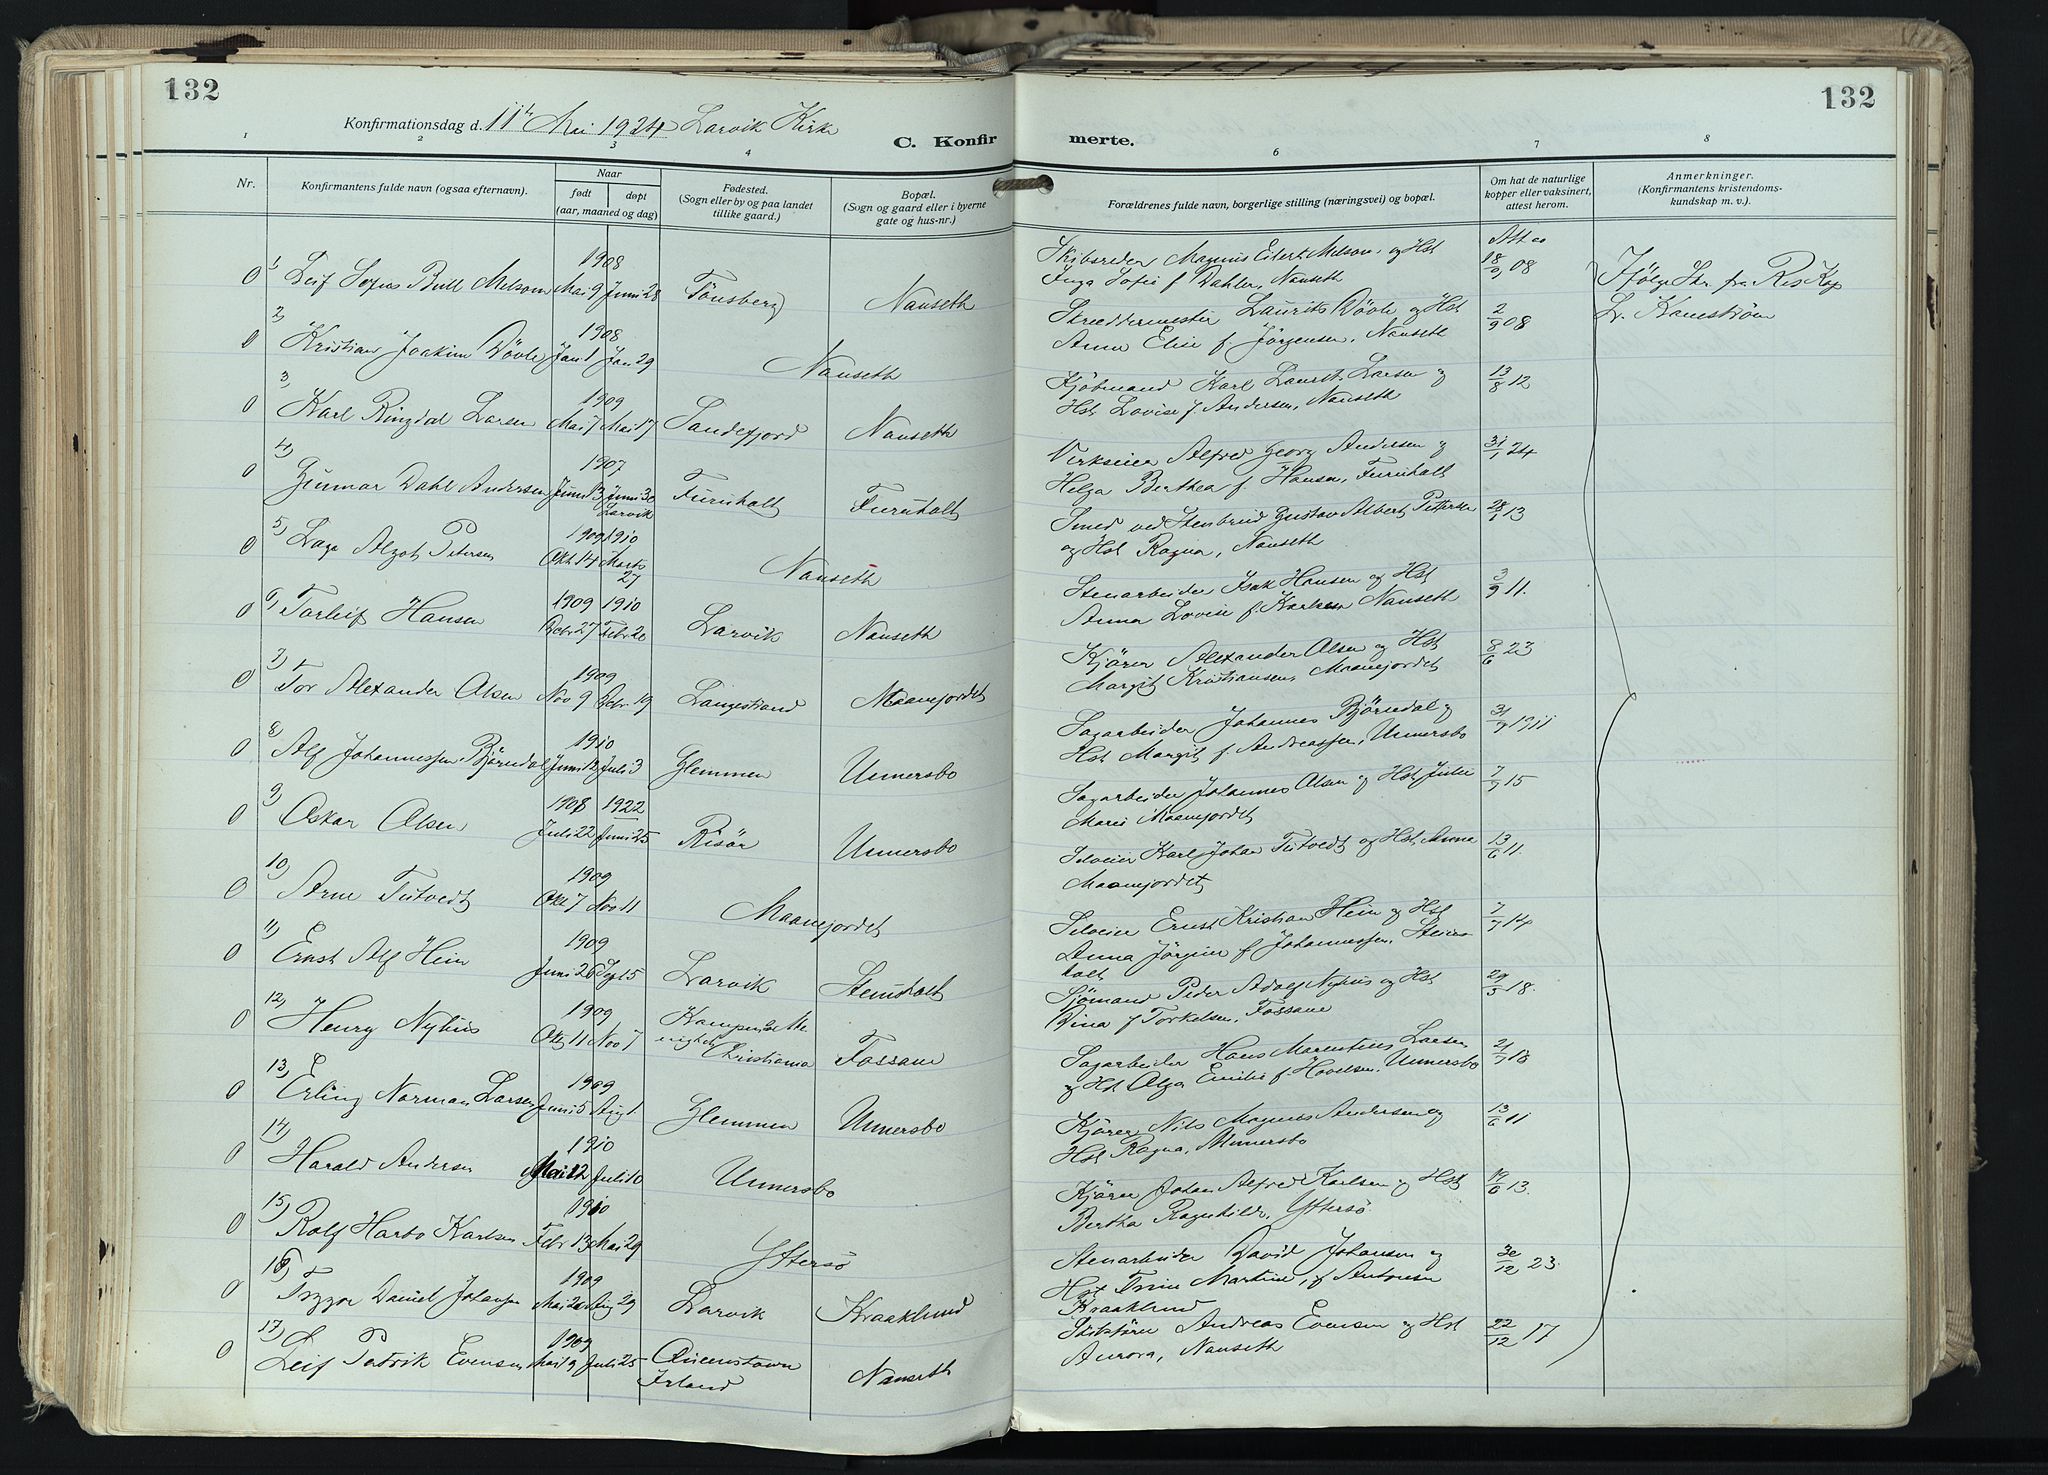 132
132
Konfirmationsdag d. 11te Mai 1924 Larvik Kirke
C. Konfirmerte.
1 2 3 4 6 7 8
Nr.
Konfirmantens fulde navn (ogsaa efternavn).
Naar
født døpt
(aar, maaned og dag)
Fødested.
(Sogn eller by og paa landet
tillike gaard.)
Bopæl.
(Sogn og gaard eller i byerne
gate og hus-nr.)
Forældrenes fulde navn, borgerlige stilling (næringsvei) og bopæl.
Om hat de naturlige
kopper eller vaksinert,
attest herom.
Anmerkninger.
(Konfirmantens kristendoms-
kundskap m. v.)
1908
0 1) Leif Sofus Bull Melsom Mai 9 Juni 28 Tönsberg Nanseth
Skibsreder Magnus Eilert Melsom og Hst
Inga Sofie f Dahler, Nanseth
18/9 08
Ifölge Skr. fra Res Kap
1908
0 2) Kristian Joakim Dövle Jan 1 Jan 29 Nanseth
Skreddermester Laurits Dövle og Hst
Anna Elise f Jörgensen, Nanseth
2/9 08
1909
0 3) Karl Ringdal Larsen Mai 7 Mai 17 Sandefjord Nanseth
Kjöbmand Karl Laurits Larsen og
Hst Lovise f. Andersen, Nanseth
13/8 12
1907
0 4) Gunnar Dahl Andersen Juni 13 Juni 30 Larvik Furuholt Furuholt
Verkseier Alfred Georg Andersen og
Helga Berthea f Hansen, Furuholt
31/1 24
1909 1910
0 5) Lage Algot Petersen Okt 14 Marts 27 Nanseth
Smed ved Stenbrud Gustav Albert Pettersen
og Hst Ragna, Nanseth
28/1 13
1909 1910
0 6) Torleif Hansen Debr 27 Febr 20 Larvik Nanseth
Stenarbeider Isak Hansen og Hst
Anna Lovise f. Karlsen Nanseth
3/9 11.
1909
0 7) Tor Alexander Olsen Nov 9 Debr 19 Langestrand Maanejordet
Kjörer Alexander Olsen og Hst
Margit Kristiansen, Maanejordet
8/6 23
1910
0 8) Alf Johannessen Björndal Juni 12 Juli 3 Glemmen Unnersbo
Sagarbeider Johannes Björndal og
Hst Margit f. Andreassen, Unnersbo
31/7 1911
1908 1922
0 9) Oskar Olsen Juli 22 Juni 25 Risör Unnersbo
Sagarbeider Johannes Olsen og Hst Julie
Marie Maanejordet
7/7 15
1909
0 10) Arne Tutvedt Okt 7 Nov 11 Maanejordet
Selveier Karl Johan Tutvedt og Hst Anna
Maanejordet
13/6 11.
1909
0 11) Ernst Alf Hein Juni 26 Sept 5 Larvik Stensholt
Selveier Ernst Kristian Hein og Hst
Anna Jörgine f Johannessen, Stens
holt
7/7 14
1909
0 12) Henry Nyhus Okt 11 Nov 7 Kampens Me
nighet Christiania Fossane
Sjömand Peder Adolf Nyhus og Hst
Dina f Torkelsen, Fossane
29/5 18.
1909
0 13) Erling Norman Larsen Juni 5 Aug 1 Glemmen Unnersbo
Sagarbeider Hans Marentius Larsen
og Hst Olga Emilie f. Hovelsen, Unnersbo
21/7 18
1910
0 14) Harald Andersen Mai 12 Juli 10 Unnersbo
Kjörer Nils Magnus Andersen og
Hst Ragna, Unnersbo
13/6 11
1910
0 15) Rolf Harbo Karlsen Febr 13 Mai 29 Yttersö
Kjörer Johan Alfred Karlsen og Hst
Bertha Ragnhilde, Yttersö
19/6 13.
1909
0 16) Trygve Daniel Johansen Mai 20 Aug 29 Larvik Kraaklund
Stenarbeider David Johansen og
Hst Trine Martine, f Antonsen
Kraaklund
30/12 23
1909
0 17) Leif Patrik Evensen Mai 9 Juli 25 Queenstown
Irland Nanseth
Andreas Evensen og Hst
Aurora, Nanseth
22/12 17